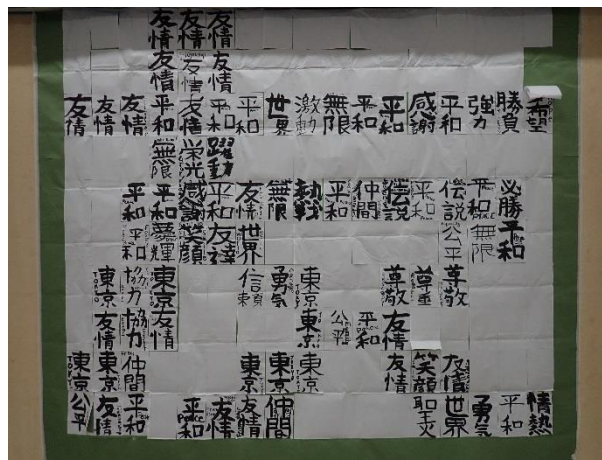 友情 友情 友情
友情 友情 友情
友情 友情 友情 平和 友情 平和 平和 世界 激動 無限 平和 平和 感謝 平和 強力 勝負 希望
無限 栄光 躍動
平和 平和 感謝 平和 友情 無限 熱戦 平和 仲間 伝説 平和 伝説 平和 必勝
平和 笑顔 友達 世界 公平 無限 平和
東京 協力 東京 信頼 勇気 東京 尊敬 尊重 尊敬
友情 協力 友情 東京 公平 平和 友情
東京 東京 仲間 東京 東京 東京 友情 笑顔 友情
公平 友情 平和 平和 友情 友情 仲間 聖火 世界 勇気 平和 情熱